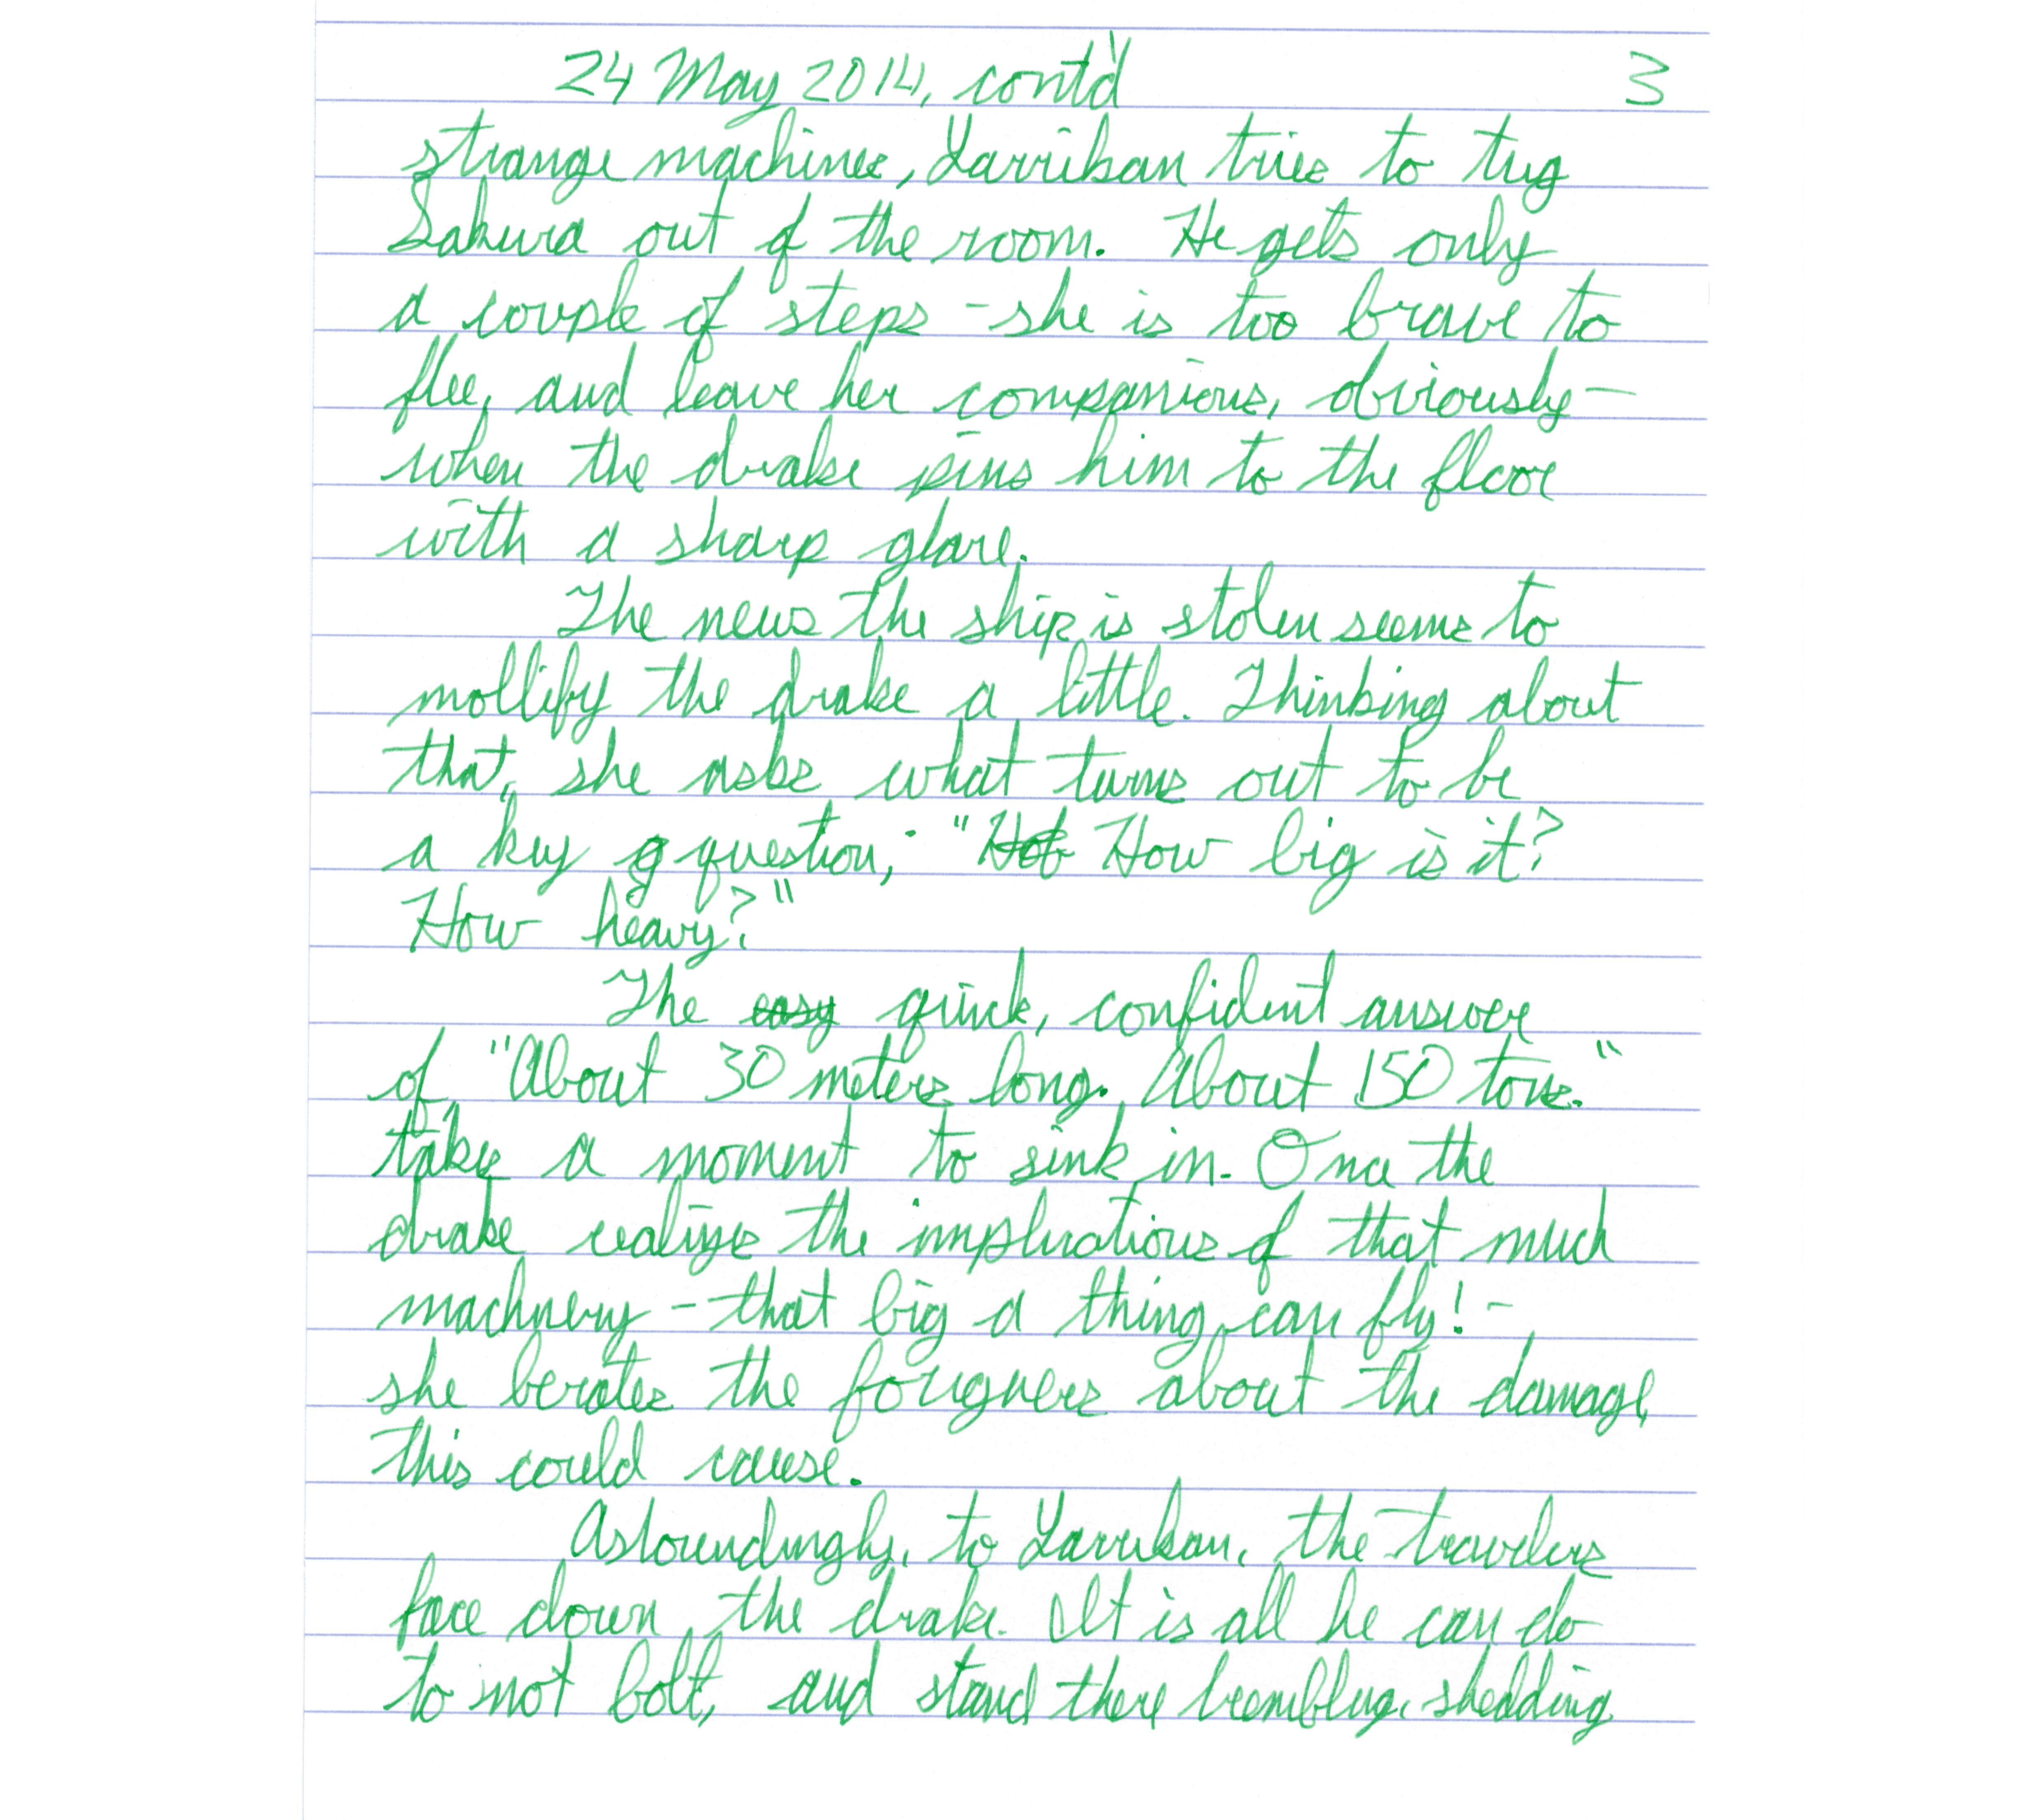 24 May 2014, cont'd 3
strange machines, Yarrikan tries to tug
Sakura out of the room. He gets only
a couple of steps - she is too brave to
flee, and leave her companions, obviously -
when the drake pins him to the floor
with a sharp glare.
The news the ship is stolen seems to
mollify the drake a little. Thinking about
that, she asks what turns out to be
a key question; "How big is it?
How heavy?"
The easy quick, confident answer
of "About 30 meters long. About 150 tons."
takes a moment to sink in. Once the
drake realizes the implications of that much
machinery - that big a thing can fly! -
she berates the foreigners about the damage
this could cause.
Astoundingly, to Yarrikan, the travelers
face down the drake. It is all he can do
to not bolt, and stand there trembling, shedding